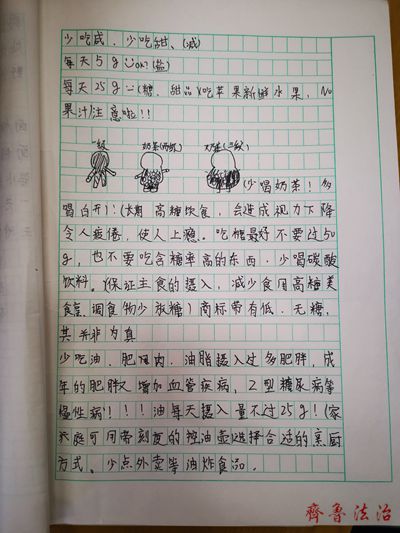 少吃咸、少吃甜、(减)
每天5g oh!(盐)
每天25g (糖、甜品)吃苹果新鲜水果，No
果汁注意啦!!
一级 奶茶(两级) 奶茶(三级)
(少喝奶茶!多
喝白开)!(长期高糖饮食，会造成视力下降
令人疲倦，使人上瘾。吃糖最好不要过50
g，也不要吃含糖率高的东西，少喝碳酸
饮料。(保证主食的摄入，减少食用高糖美
食，烹调食物少放糖)商标带有低、无糖，
其并非为真
少吃油、肥肉，油脂摄入过多肥胖，成
年的肥胖又增加血管疾病，2型糖尿病等
慢性病!!!!油每天摄入量不过25g!(家
庭可用带刻度的控油壶选择合适的烹厨
方式、少点外卖等油炸食品。
齊鲁法治